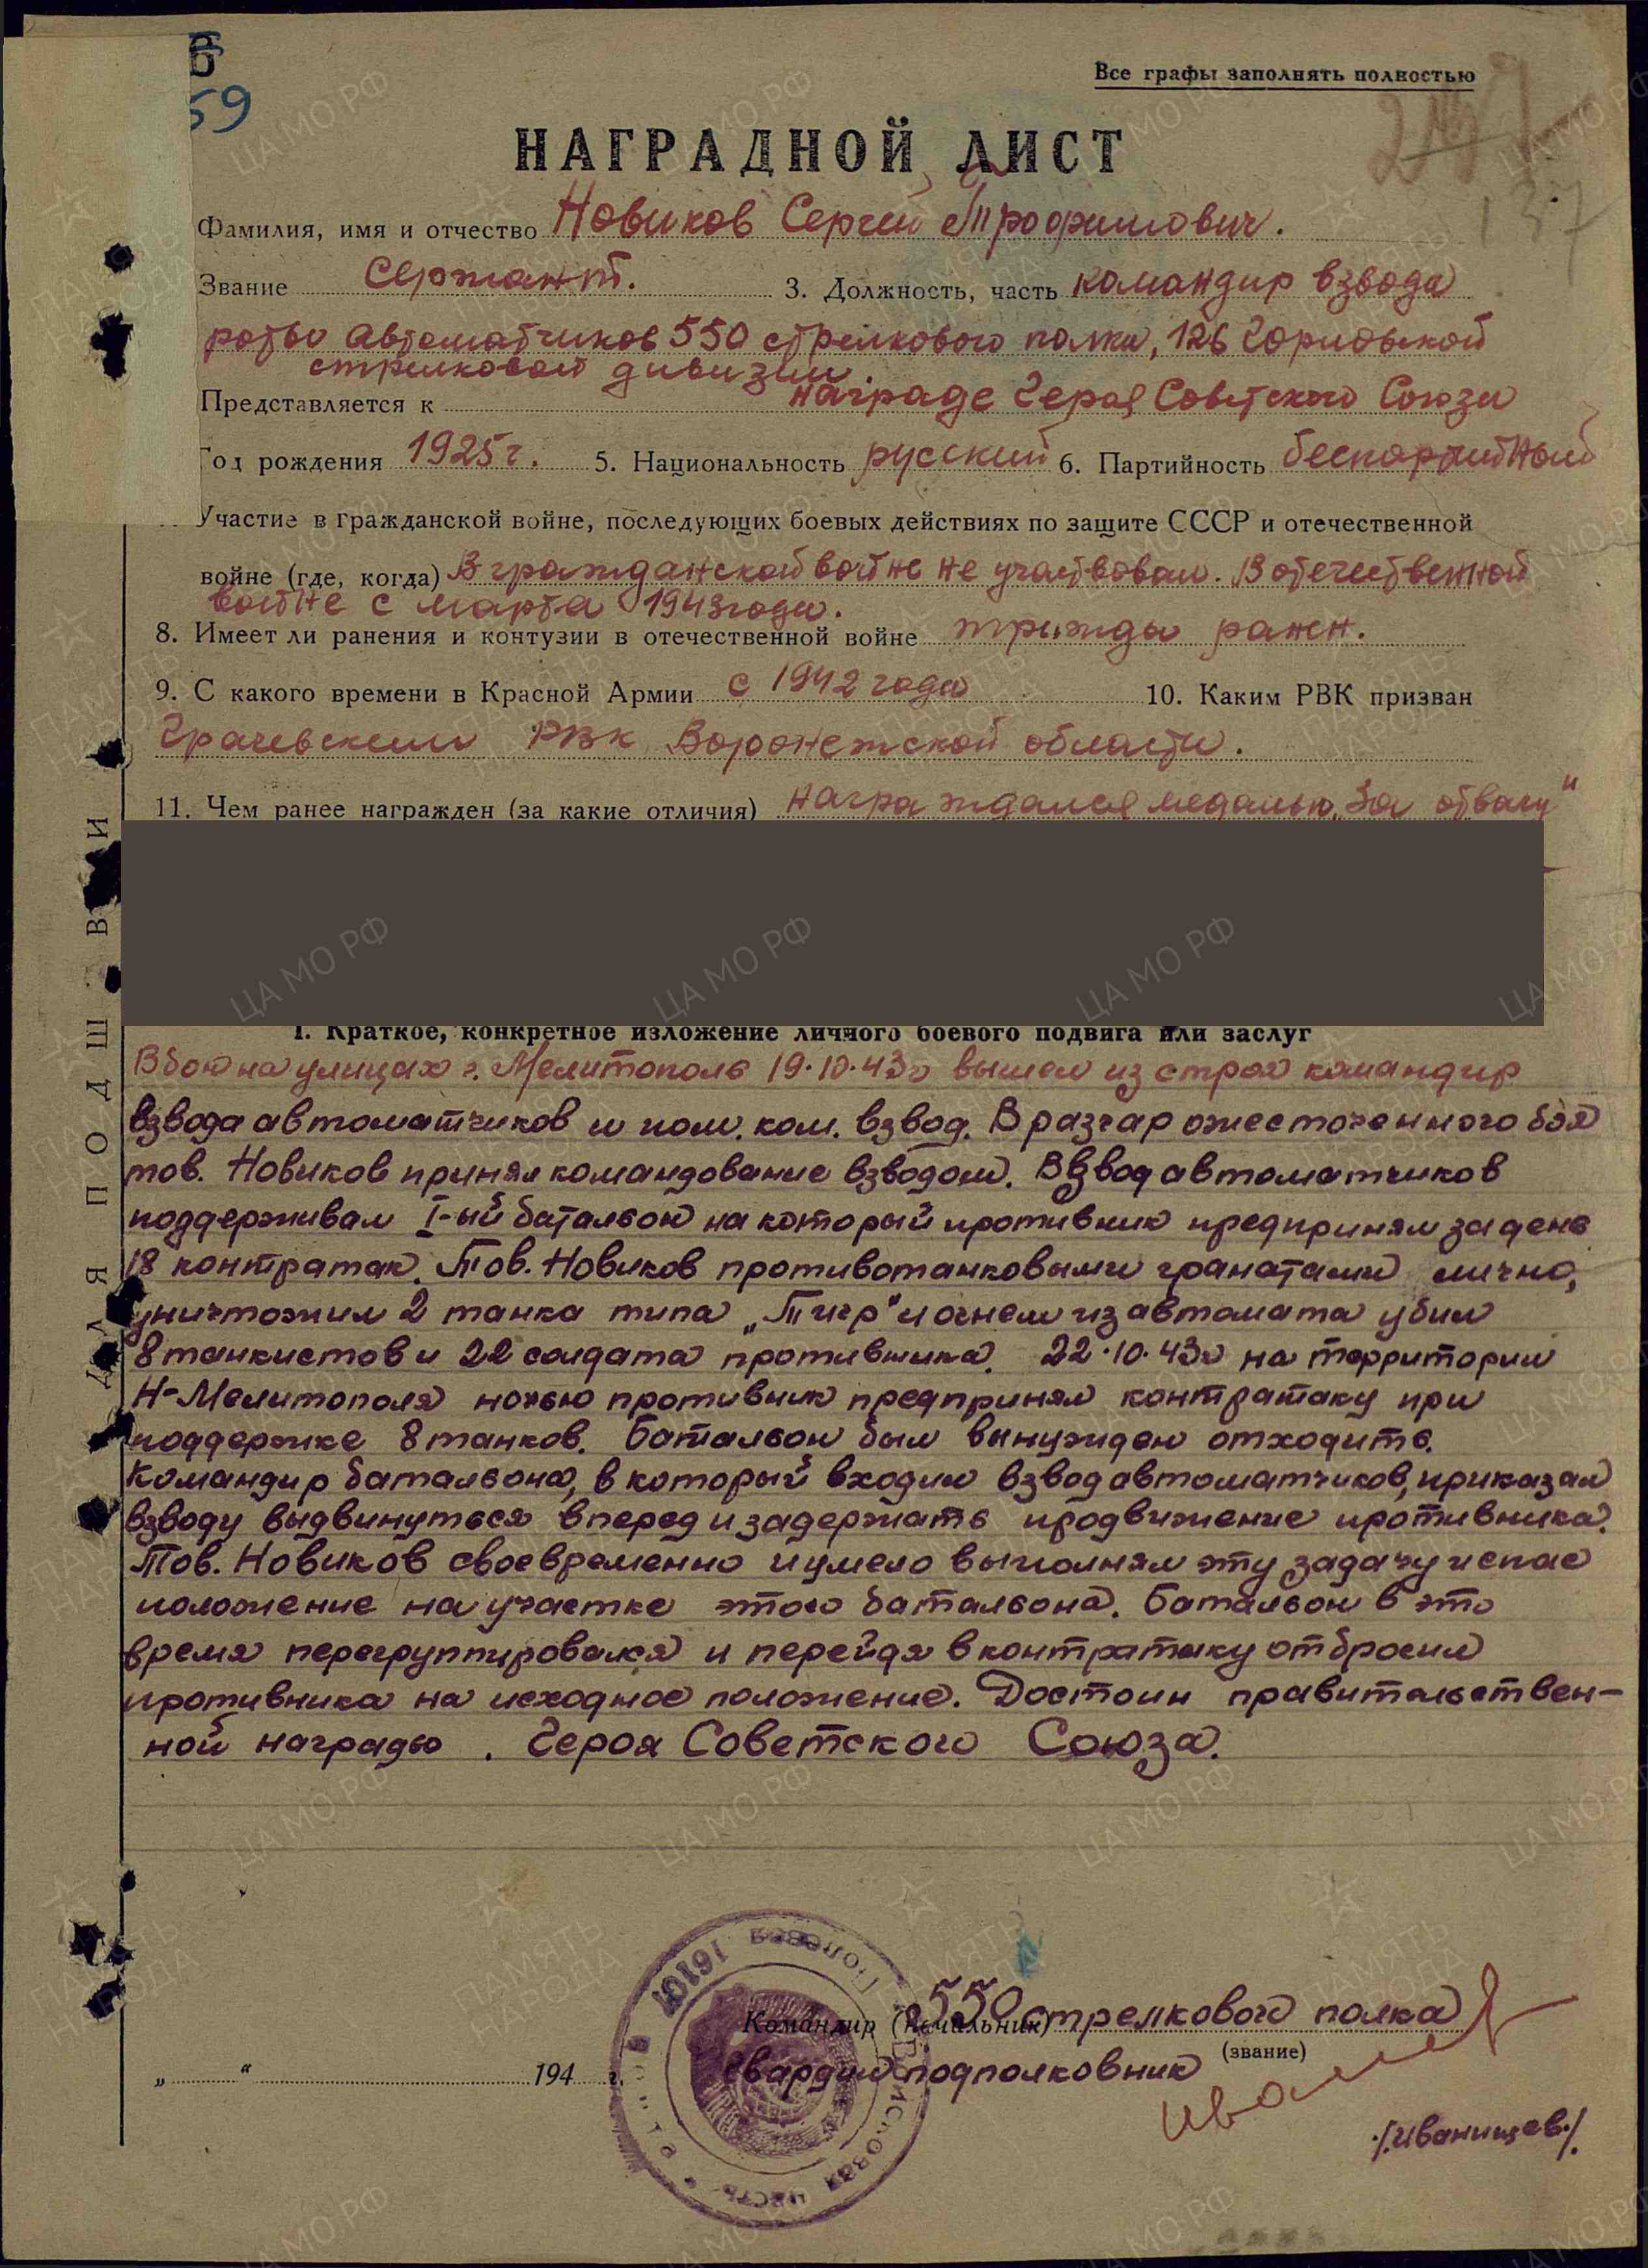 59
Все графы заполнять полностью
НАГРАДНОЙ ЛИСТ
137
Фамилия, имя и отчество Новиков Сергей Трофимович.
Звание Сержант. 3. Должность, часть командир взвода
роты автоматчиков 550 стрелкового полка, 126 Горловской
стрелковой дивизии.
Представляется к награде Героя Советского Союза
Год рождения 1925 г. 5. Национальность русский 6. Партийность беспартийный
Участие в гражданской войне, последующих боевых действиях по защите СССР и отечественной
войне (где, когда) В гражданской войне не участвовал. В отечественной
войне с марта 1943 года.
8. Имеет ли ранения и контузии в отечественной войне трижды ранен.
9. С какого времени в Красной Армии с 1942 года 10. Каким РВК призван
Грачевским РВК Воронежской области.
11. Чем ранее награжден (за какие отличия) награждался медалью „За отвагу"
I. Краткое, конкретное изложение личного боевого подвига или заслуг
В бою на улицах г. Мелитополь 19.10.43г вышел из строя командир
взвода автоматчиков и пом. ком. взвод. В разгар ожесточенного боя
тов. Новиков принял командование взводом. Взвод автоматчиков
поддерживал I-ый батальон на который противник предпринял за день
18 контратак. Тов. Новиков противотанковыми гранатами лично,
уничтожил 2 танка типа „Тигр" и огнем из автомата убил
8 танкистов и 22 солдата противника. 22.10.43г на территории
Н-Мелитополя ночью противник предпринял контратаку при
поддержке 8 танков. Батальон был вынужден отходить.
Командир батальона, в который входил взвод автоматчиков, приказал
взводу выдвинуться вперед и задержать продвижение противника.
Тов. Новиков своевременно и умело выполнял эту задачу и спас
положение на участке этого батальона. Батальон в это
время перегруппировался и перейдя в контратаку отбросил
противника на исходное положение. Достоин правительствен-
ной награды. Героя Советского Союза.
Командир (начальник) 550 стрелкового полка
(звание)
Гвардии подполковник
„ “ 194 г.
/Иванищев/
Полевая
16101
Войсковая часть
ДЛЯ ПОДШИВКИ
ЦА МО РФ
ПАМЯТЬ НАРОДА